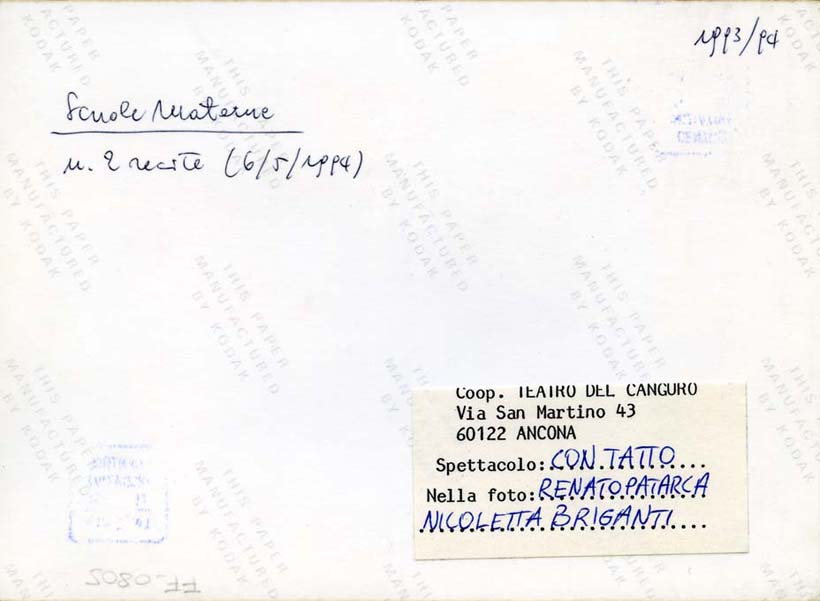 1993/94
Scuole Materne
n. 2 recite (6/5/1994)
THIS PAPER
MANUFACTURED
BY KODAK
Coop. TEATRO DEL CANGURO
Via San Martino 43
60122 ANCONA
Spettacolo: CON TATTO
Nella foto: RENATO PATARCA
NICOLETTA BRIGANTI
FF-0802